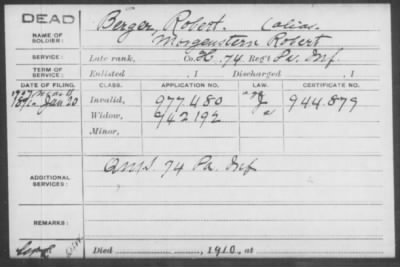 DEAD
Berger, Robert. (alias.
NAME OF SOLDIER: Morgenstern Robert
SERVICE: Late rank, Co. H, 74 Reg't Pa. Inf.
TERM OF SERVICE: Enlisted , 1 Discharged , 1
DATE OF FILING. CLASS. APPLICATION NO. LAW. CERTIFICATE NO.
Jan 20 Invalid, 977.480 944.879
Widow, 942192
Minor,
ADDITIONAL SERVICES: 74 Pa. Inf
REMARKS:
Died , 1910, at